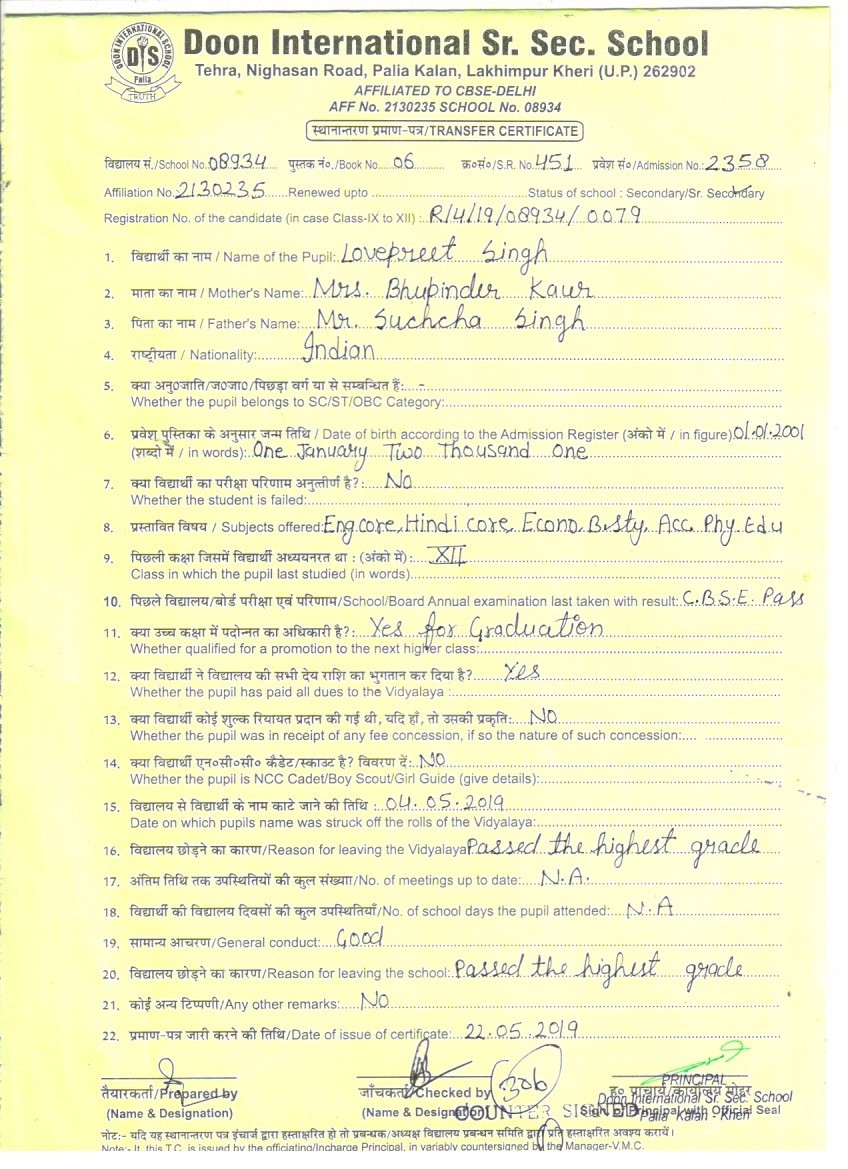 DOON INTERNATIONAL SCHOOL
DIS
Palia
TRUTH
Doon International Sr. Sec. School
Tehra, Nighasan Road, Palia Kalan, Lakhimpur Kheri (U.P.) 262902
AFFILIATED TO CBSE-DELHI
AFF No. 2130235 SCHOOL No. 08934
स्थानान्तरण प्रमाण-पत्र/TRANSFER CERTIFICATE
विद्यालय सं./School No. 08934 पुस्तक नं०/Book No. 06 क्र०सं०/S.R. No. 451 प्रवेश सं०/Admission No.: 2358
Affiliation No. 2130235 Renewed upto Status of school : Secondary/Sr. Secondary
Registration No. of the candidate (in case Class-IX to XII) : R/4/19/08934/0079
1. विद्यार्थी का नाम / Name of the Pupil: Lovepreet Singh
2. माता का नाम / Mother's Name: Mrs. Bhupinder Kaur
3. पिता का नाम / Father's Name: Mr. Suchcha Singh
4. राष्ट्रीयता / Nationality: Indian
5. क्या अनु०जाति/ज०जा०/पिछड़ा वर्ग या से सम्बन्धित हैं: -
Whether the pupil belongs to SC/ST/OBC Category:
6. प्रवेश पुस्तिका के अनुसार जन्म तिथि / Date of birth according to the Admission Register (अंको में / in figure) 01.01.2001
(शब्दो में / in words): One January Two Thousand One
7. क्या विद्यार्थी का परीक्षा परिणाम अनुत्तीर्ण है?: No
Whether the student is failed:
8. प्रस्तावित विषय / Subjects offered: Eng.core, Hindi core, Econo. B.sty, Acc, Phy. Edu
9. पिछली कक्षा जिसमें विद्यार्थी अध्ययनरत था : (अंको में): XII
Class in which the pupil last studied (in words)
10. पिछले विद्यालय/बोर्ड परीक्षा एवं परिणाम/School/Board Annual examination last taken with result: C.B.S.E. Pass
11. क्या उच्च कक्षा में पदोन्नत का अधिकारी है?: Yes for Graduation
Whether qualified for a promotion to the next higher class:
12. क्या विद्यार्थी ने विद्यालय की सभी देय राशि का भुगतान कर दिया है? Yes
Whether the pupil has paid all dues to the Vidyalaya :
13. क्या विद्यार्थी कोई शुल्क रियायत प्रदान की गई थी, यदि हाँ, तो उसकी प्रकृति: NO
Whether the pupil was in receipt of any fee concession, if so the nature of such concession:
14. क्या विद्यार्थी एन०सी०सी० कैडैट/स्काउट है? विवरण दें: NO
Whether the pupil is NCC Cadet/Boy Scout/Girl Guide (give details):
15. विद्यालय से विद्यार्थी के नाम काटे जाने की तिथि : 04.05.2019
Date on which pupils name was struck off the rolls of the Vidyalaya:
16. विद्यालय छोड़ने का कारण/Reason for leaving the Vidyalaya Passed the highest grade
17. अंतिम तिथि तक उपस्थितियों की कुल संख्या/No. of meetings up to date: N.A.
18. विद्यार्थी की विद्यालय दिवसों की कुल उपस्थितियाँ/No. of school days the pupil attended: N.A
19. सामान्य आचरण/General conduct: Good
20. विद्यालय छोड़ने का कारण/Reason for leaving the school: Passed the highest grade
21. कोई अन्य टिप्पणी/Any other remarks: No
22. प्रमाण-पत्र जारी करने की तिथि/Date of issue of certificate: 22.05.2019
तैयारकर्ता/Prepared by जाँचकर्ता/Checked by 306 ह० प्राचार्य/कार्यालय मोहर
(Name & Designation) (Name & Designation) Sign. of Principal with Official Seal
PRINCIPAL
Doon International Sr. Sec. School
Palia Kalan - Kheri
COUNTER SIGNED
नोट:- यदि यह स्थानान्तरण पत्र इंचार्ज द्वारा हस्ताक्षरित हो तो प्रबन्धक/अध्यक्ष विद्यालय प्रबन्धन समिति द्वारा प्रति हस्ताक्षरित अवश्य करायें।
Note:- It, this T.C. is issued by the officiating/Incharge Principal, in variably countersigned by the Manager-V.M.C.